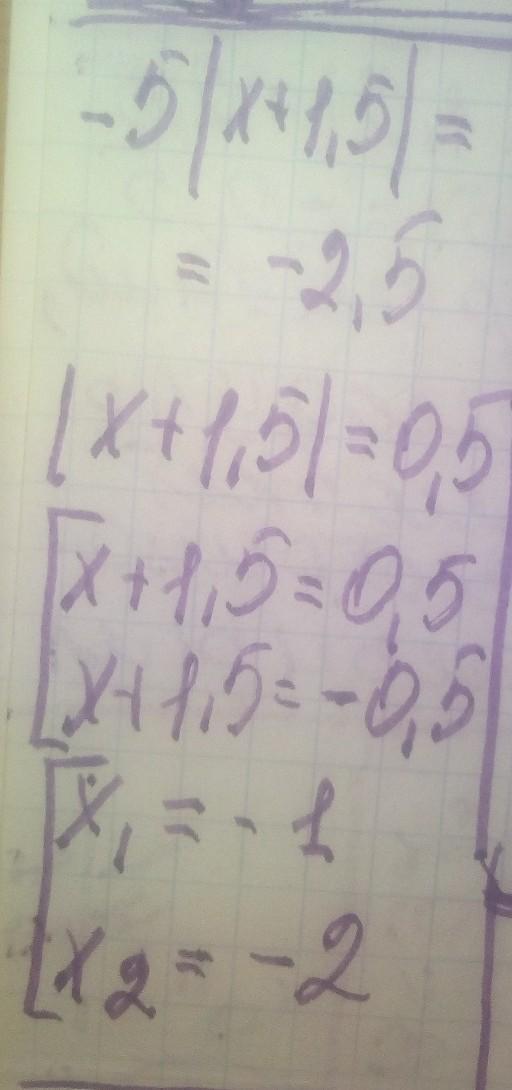 -5|x+1,5|=
= -2,5
|x+1,5|=0,5
x+1,5=0,5
x+1,5=-0,5
x₁=-1
x₂=-2